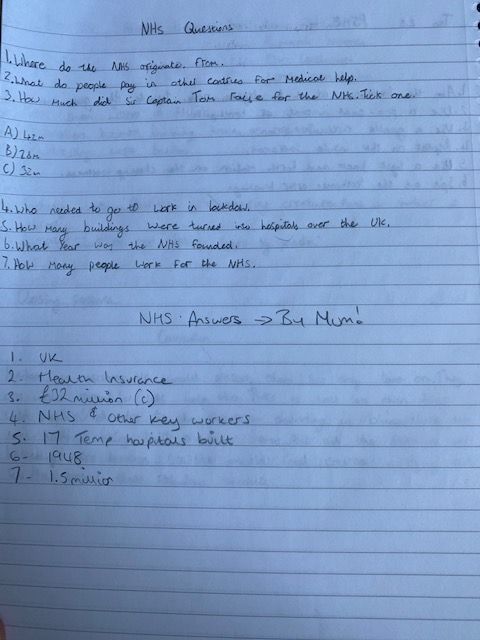 NHS Questions
1. Where do the NHS originate from.
2. What do people pay in other contries for Medical help.
3. How Much did Sir Captain Tom raise for the NHS. Tick one.
A) 42m
B) 28m
C) 32m
4. Who needed to go to work in lockdow.
5. How Many buildings were turned into hospitals over the UK.
6. What Year was the NHS founded.
7. How Many people work for the NHS.
NHS Answers → By Mum!
1. UK
2. Health Insurance
3. £32 million (c)
4. NHS & other key workers
5. 17 Temp hospitals built
6- 1948
7- 1.5 million